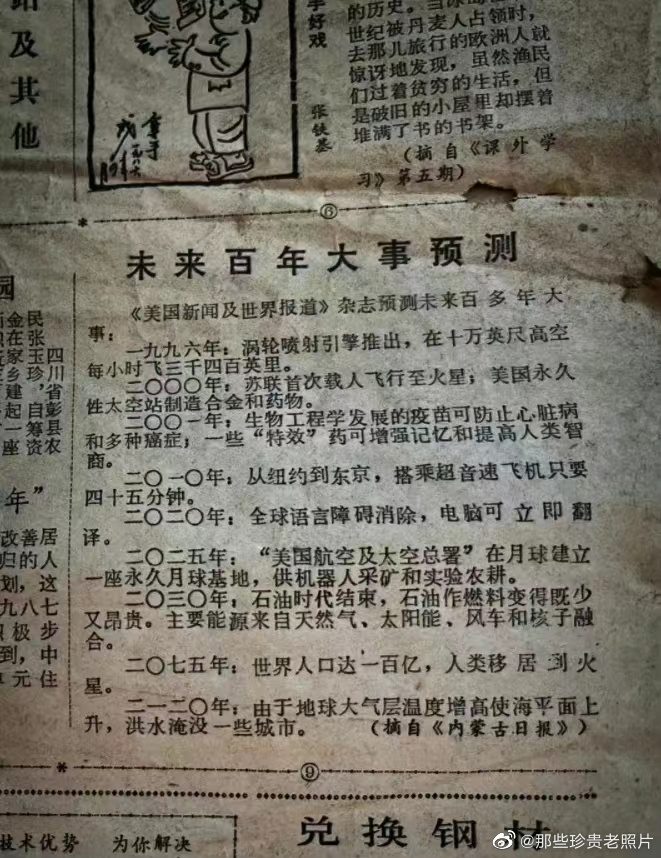 站及其他
手好戏
张铁基
的历史。当冰岛在
世纪被丹麦人占领时，
去那儿旅行的欧洲人就
惊讶地发现，虽然渔民
们过着贫穷的生活，但
是破旧的小屋里却摆着
堆满了书的书架。
（摘自《课外学
习》第五期）
⑧
未来百年大事预测
《美国新闻及世界报道》杂志预测未来百多年大
事：
一九九六年：涡轮喷射引擎推出，在十万英尺高空
每小时飞三千四百英里。
二〇〇〇年：苏联首次载人飞行至火星；美国永久
性太空站制造合金和药物。
二〇〇一年：生物工程学发展的疫苗可防止心脏病
和多种癌症；一些“特效”药可增强记忆和提高人类智
商。
二〇一〇年：从纽约到东京，搭乘超音速飞机只要
四十五分钟。
二〇二〇年：全球语言障碍消除，电脑可立即翻
译。
二〇二五年：“美国航空及太空总署”在月球建立
一座永久月球基地，供机器人采矿和实验农耕。
二〇三〇年：石油时代结束，石油作燃料变得既少
又昂贵。主要能源来自天然气、太阳能、风车和核子融
合。
二〇七五年：世界人口达一百亿，人类移居到火
星。
二一二〇年：由于地球大气层温度增高使海平面上
升，洪水淹没一些城市。（摘自《内蒙古日报》）
⑨
园
四川省彭县农
民张玉珍，自筹资
金在家乡建起一座
年”
改善居
归的人
划，这
九八七
积极步
到，中
单元住
技术优势 为你解决
兑换钢材
@那些珍贵老照片